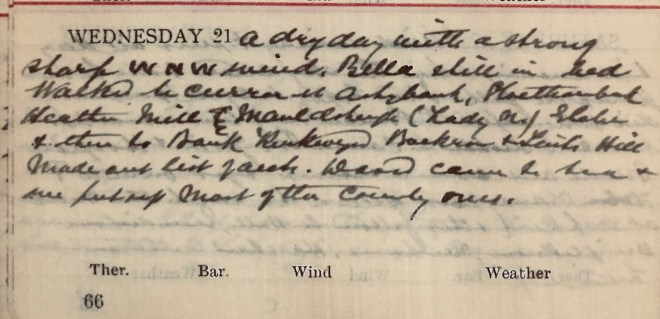 WEDNESDAY 21 a dry day with a strong
sharp W N W wind. Bella still in bed
Walked to Curror at Ashybank,
Heather Mill & (Lady
& then to Bank Hill
Made out list of accts. Wood came to tea &
we put up most of the County ones.
Ther. Bar. Wind Weather
66